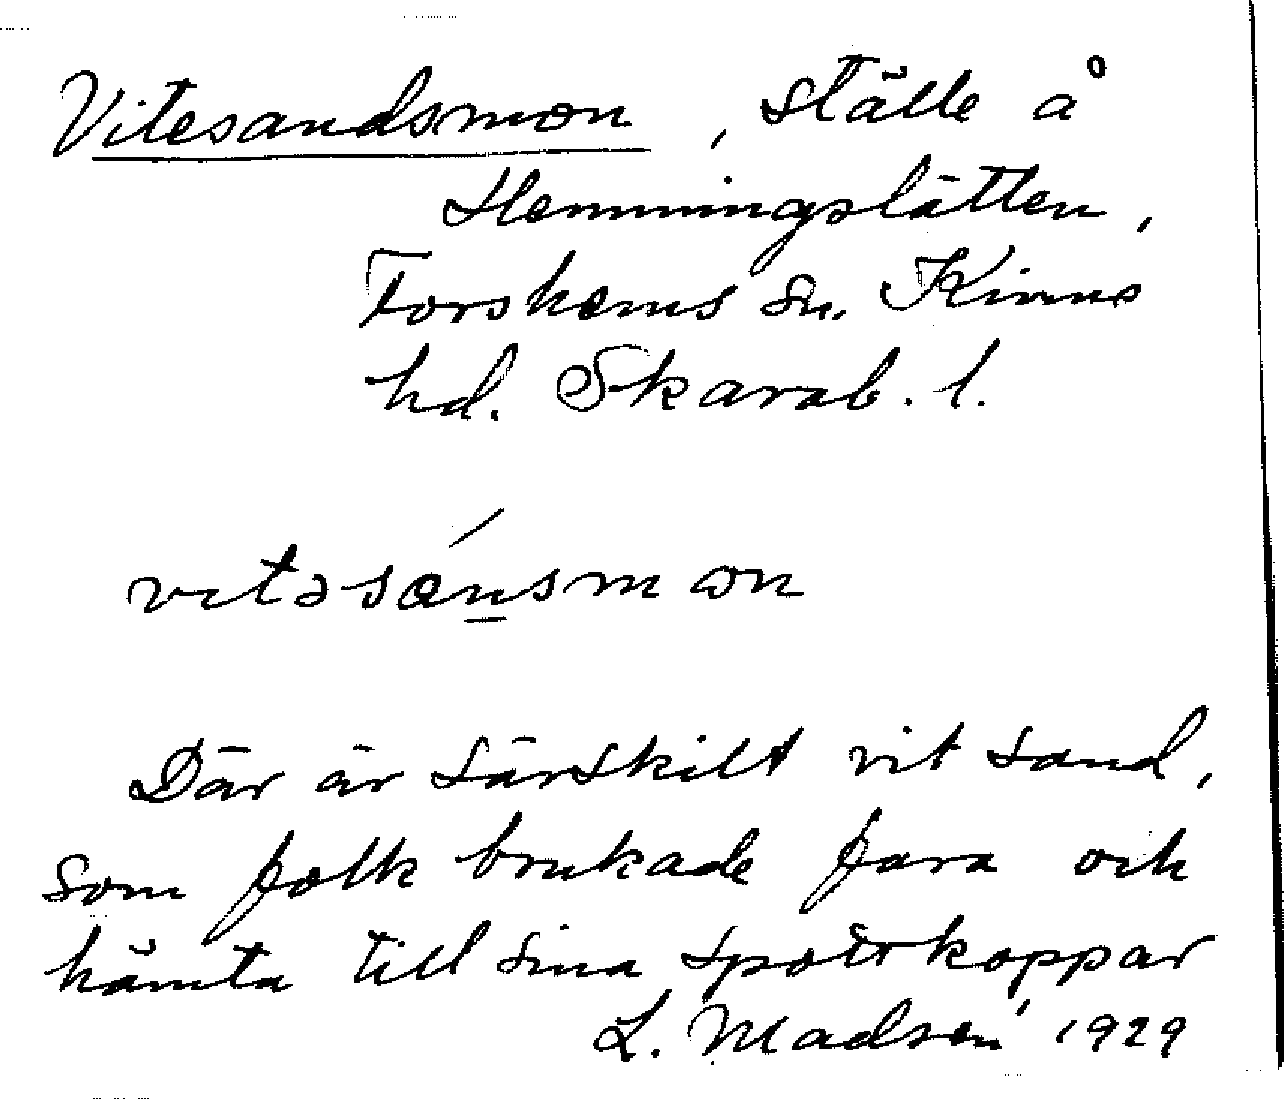 Vitesandsmon, ställe å
Hemmingslätten,
Forshems sn. Kinne
hd. Skarab. l.
vitəsánsmon
Där är särskilt vit sand,
som folk brukade fara och
hämta till sina spottkoppar
L. Madsén 1929